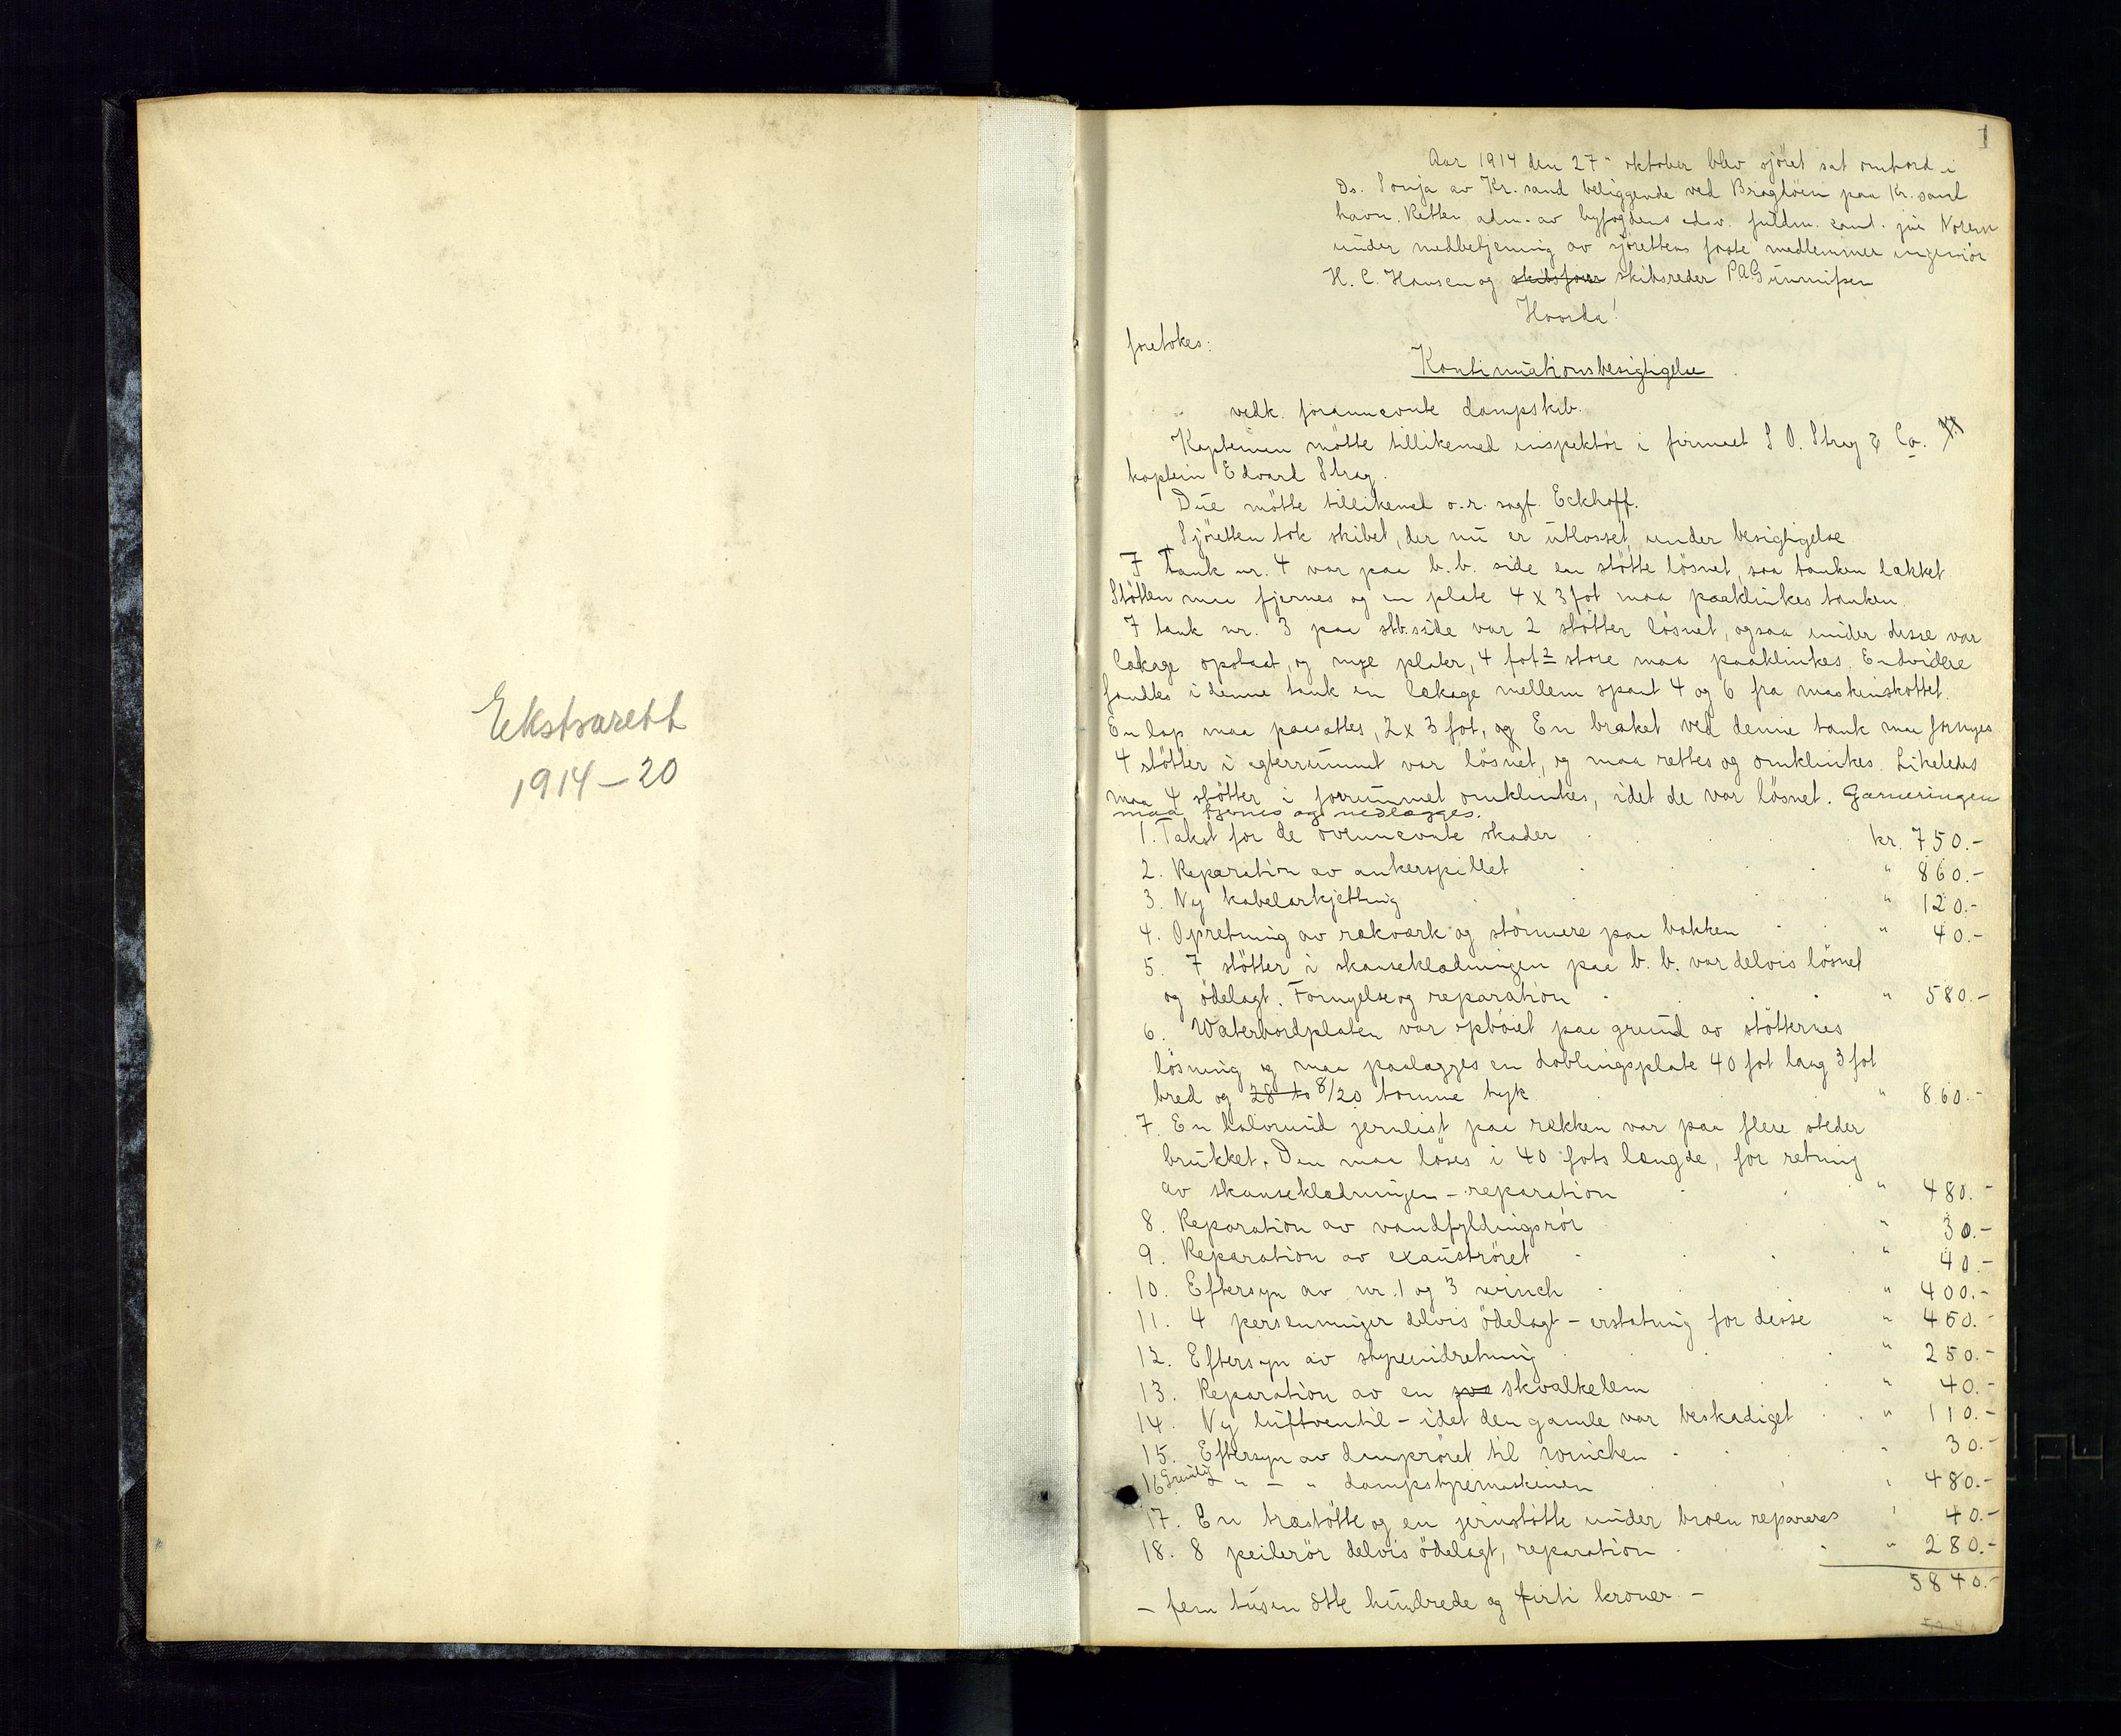 Ekstrarett
1914-20
1
Aar 1914 den 27- oktober blev sjöret sat ombord i
Ds. Sonja av Kr.sand beliggende ved Bragdöen paa Kr.sand
havn. Retten adm. av byfogdens edsv. fuldm. cand. jur
under medbetjening av sjörettens faste medlemmer ingeniör
H. C. Hansen og skibsreder P.A. Gunnifsen
Hvorda!
foretokes:
Kontinuationsbesigtigelse
vedk. forannevnte dampskib.
Kapteinen mötte tillikemed inspektör i firmaet S O. Stray & Co.
kaptein Edvard Stray.
Due mötte tillikemed o.r. sagf. Eckhoff.
Sjöretten tok skibet, der nu er utlosset, under besigtigelse
I Tank nr. 4 var paa b.b. side en stötte lösnet, saa tanken lækket
Stötten maa fjernes og en plate 4 x 3 fot maa paaklinkes tanken.
I tank nr. 3 paa stb.side var 2 stötter lösnet, ogsaa under disse var
lækage opstaat, og nye plater, 4 fot2 store maa paaklinkes. Endvidere
fandtes i denne tank en lækage mellem spant 4 og 6 fra maskinskottet.
En lap maa paasættes, 2 x 3 fot, og En braket ved denne tank maa fornyes
4 stötter i agterrummet var lösnet, og maa rettes og omklinkes. Likeledes
maa 4 stötter i forrummet omklinkes, idet de var lösnet. Garneringen
maa fjernes og nedlægges.
1. Takst for de ovennevnte skader kr. 750.-
2. Reparation av ankerspillet " 860.-
3. Ny kabelarkjetting " 120.-
4. Opretning av rækværk og störmere paa bakken " 40.-
5. 7 stötter i skanseklædningen paa b.b. var delvis lösnet
og ödelagt. Fornyelse og reparation " 580.-
6. Waterbordplaten var opböiet paa grund av stötternes
lösning og maa paalægges en doblingsplate 40 fot lang 3 fot
bred og 8/20 tomme tyk " 860.-
7. En halvrund jernlist paa rækken var paa flere steder
brukket. Den maa löses i 40 fots længde, for retning
av skanseklædningen - reparation " 480.-
8. Reparation av vandfyldingsrör " 30.-
9. Reparation av exauströret " 40.-
10. Eftersyn av nr. 1 og 3 winch " 400.-
11. 4 persenninger delvis ödelagt - erstatning for disse " 450.-
12. Eftersyn av styreindretning " 250.-
13. Reparation av en skvalkelem " 40.-
14. Ny luftventil - idet den gamle var beskadiget " 110.-
15. Eftersyn av damprøret til winchen " 30.-
16 Grundig " - " dampstyremaskinen " 480.-
17. En træstötte og en jernstötte under broen repareres " 40.-
18. 8 peilerör delvis ödelagt, reparation " 280.-
5840.-
- fem tusen otte hundrede og firti kroner. -